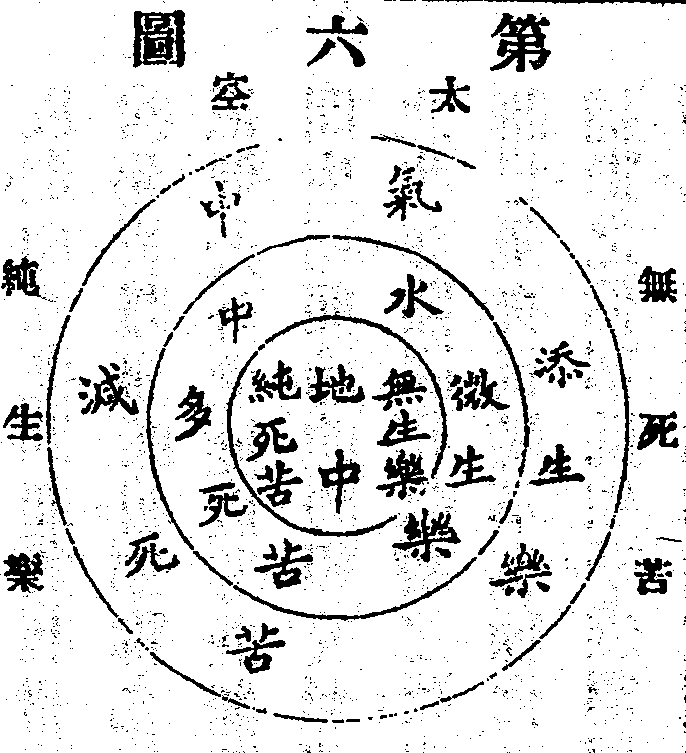 第六圖
太空
無死苦
純生樂
氣中
添生樂
減死苦
水中
微生樂
多死苦
地中
無生樂
純死苦